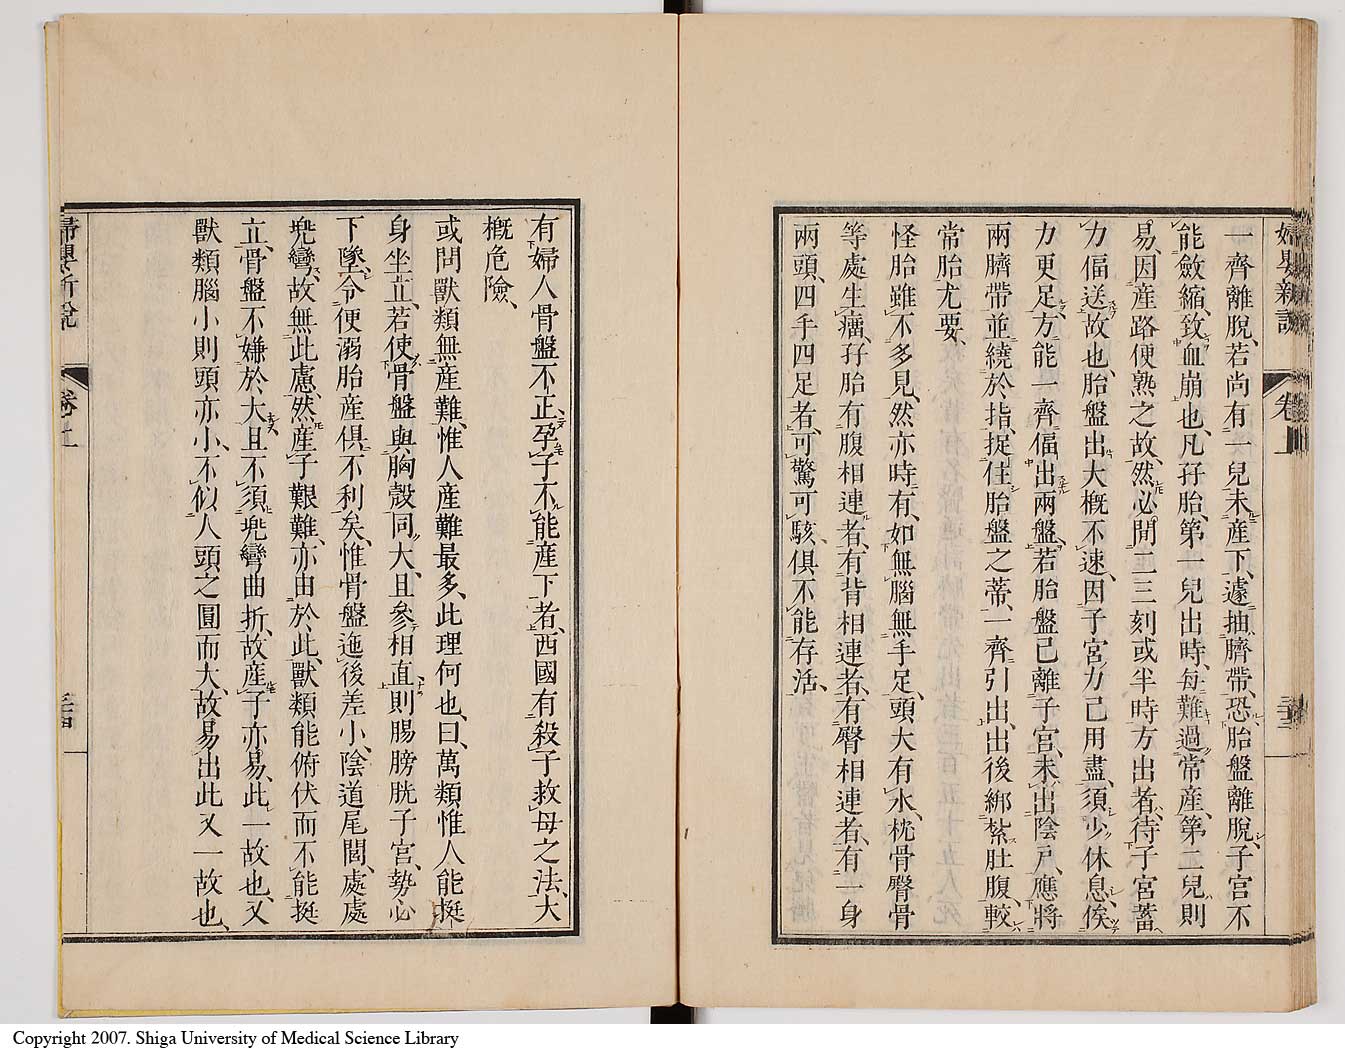 一齊離脫、若尚有一兒未產下、遽抽臍帶、恐胎盤離脫、子宮不
能斂縮、致血崩也、凡孖胎、第一兒出時、每難過常產、第二兒則
易、因產路便熟之故、然必間二三刻或半時方出者、待子宮蓄
力偪送故也、胎盤出大概不速、因子宮力已用盡、須少休息、俟
力更足、方能一齊偪出兩盤、若胎盤已離子宮、未出陰戶、應將
兩臍帶並繞於指、捉住胎盤之蒂、一齊引出、出後綁紮肚腹、較
常胎尤要、
怪胎雖不多見、然亦時有、如無腦無手足、頭大有水、枕骨臀骨
等處生瘤、孖胎有腹相連者、有背相連者、有臀相連者、有一身
兩頭、四手四足者、可驚可駭、俱不能存活、
有婦人骨盤不正、孕子不能產下者、西國有殺子救母之法、大
概危險、
或問獸類無產難、惟人產難最多、此理何也、曰、萬類惟人能挺
身坐立、若使骨盤與胸殼同大、且參相直、則腸膀胱子宮、勢必
下墜、令便溺胎產俱不利矣、惟骨盤迤後差小、陰道尾閭、處處
兜彎、故無此慮、然產子艱難、亦由於此、獸類能俯伏而不能挺
立、骨盤不嫌於大、且不須兜彎曲折、故產子亦易、此一故也、又
獸類腦小則頭亦小、不似人頭之圓而大、故易出、此又一故也、
婦嬰新說
卷上
Copyright 2007. Shiga University of Medical Science Library